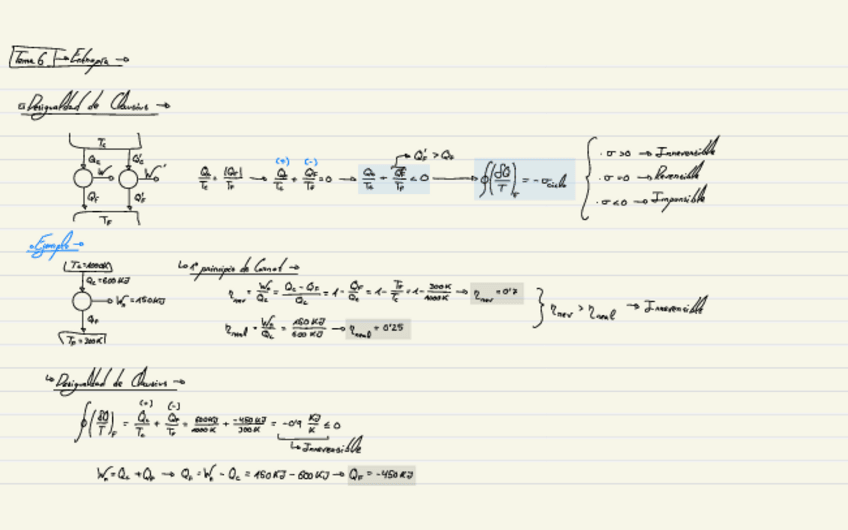 Tema 6 → Entropía →
Desigualdad de Clausius →
T_c
Q_c Q'_c W W'
Q_F Q'_F
T_F
Q_c/T_c = |Q_F|/T_F → (+) Q_c/T_c + (-) Q_F/T_F = 0 → Q_c/T_c + Q'_F/T_F < 0 → Q'_F > Q_F
∮(δQ/T)_F = -σ_ciclo
· σ>0 → Irreversible
· σ=0 → Reversible
· σ<0 → Imposible
Ejemplo →
T_c=1000K
Q_c=600KJ
W_n=150KJ
Q_F
T_F=300K
↳ 1º principio de Carnot →
η_rev = W_n/Q_c = (Q_c - Q_F)/Q_c = 1 - Q_F/Q_c = 1 - T_F/T_c = 1 - 300K/1000K → η_rev = 0'7
η_real = W_n/Q_c = 150KJ/600KJ → η_real = 0'25
η_rev > η_real → Irreversible
↳ Desigualdad de Clausius →
∮(δQ/T)_F = (+) Q_c/T_c + (-) Q_F/T_F = 600KJ/1000K + -450KJ/300K = -0'9 KJ/K ≤ 0
↳ Irreversible
W_n = Q_c + Q_F → Q_F = W_n - Q_c = 150KJ - 600KJ → Q_F = -450KJ